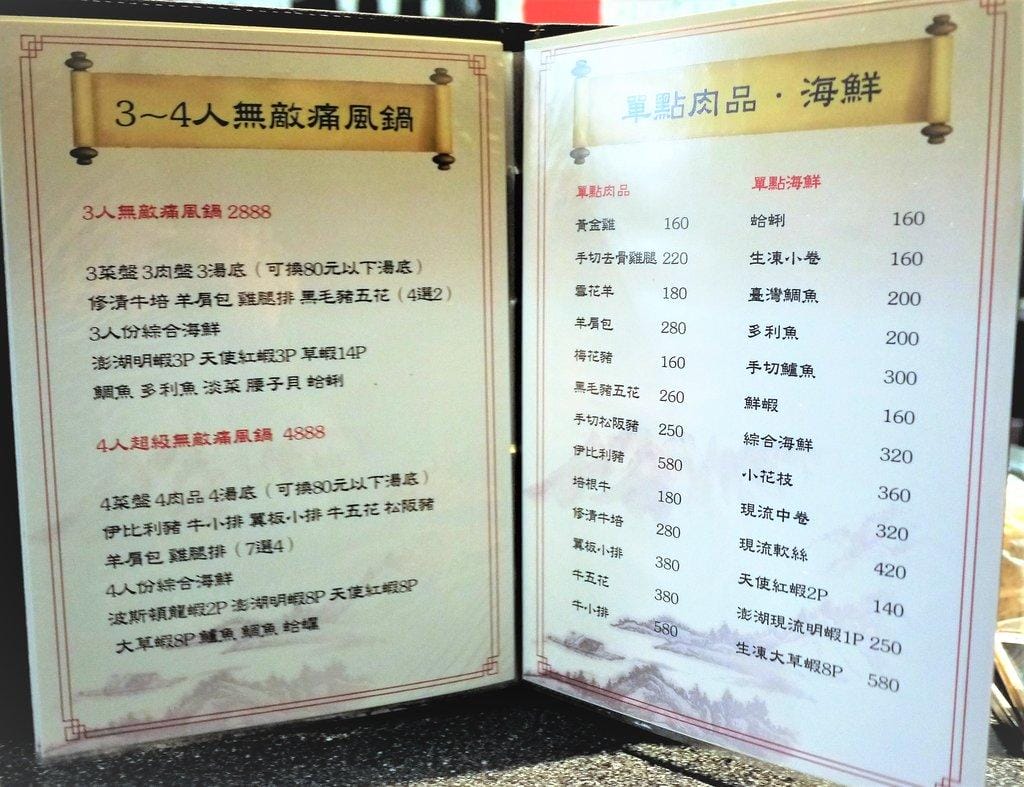 3～4人無敵痛風鍋
3人無敵痛風鍋 2888
3菜盤 3肉盤 3湯底（可換80元以下湯底）
修清牛培 羊肩包 雞腿排 黑毛豬五花（4選2）
3人份綜合海鮮
澎湖明蝦3P 天使紅蝦3P 草蝦14P
鯛魚 多利魚 淡菜 腰子貝 蛤蜊
4人超級無敵痛風鍋 4888
4菜盤 4肉品 4湯底（可換80元以下湯底）
伊比利豬 牛小排 翼板小排 牛五花 松阪豬
羊肩包 雞腿排（7選4）
4人份綜合海鮮
波斯頓龍蝦2P 澎湖明蝦8P 天使紅蝦8P
大草蝦8P 鱸魚 鯛魚 蛤蠣
單點肉品・海鮮
單點肉品
黃金雞 160
手切去骨雞腿 220
雪花羊 180
羊肩包 280
梅花豬 160
黑毛豬五花 260
手切松阪豬 250
伊比利豬 580
培根牛 180
修清牛培 280
翼板小排 380
牛五花 380
牛小排 580
單點海鮮
蛤蜊 160
生凍小卷 160
臺灣鯛魚 200
多利魚 200
手切鱸魚 300
鮮蝦 160
綜合海鮮 320
小花枝 360
現流中卷 320
現流軟絲 420
天使紅蝦2P 140
澎湖現流明蝦1P 250
生凍大草蝦8P 580